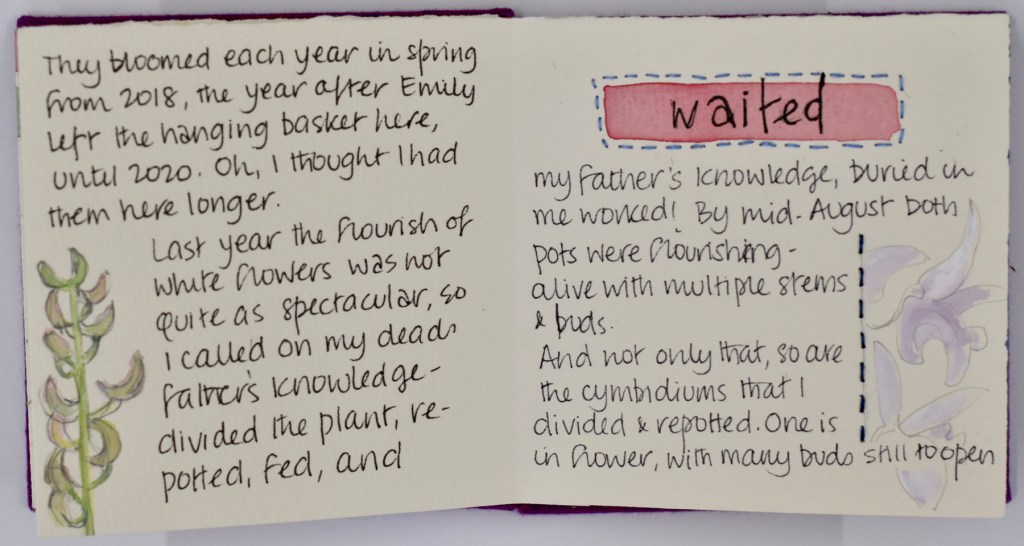 They bloomed each year in spring
from 2018, the year after Emily
left the hanging basket here,
until 2020. Oh, I thought I had
them here longer.
Last year the flourish of
white flowers was not
quite as spectacular, so
I called on my dead
father's knowledge-
divided the plant, re-
potted, fed, and
waited
my father's knowledge, buried in
me worked! By mid-August both
pots were flourishing-
alive with multiple stems
& buds.
And not only that, so are
the cymbidiums that I
divided & repotted. One is
in flower, with many buds still to open